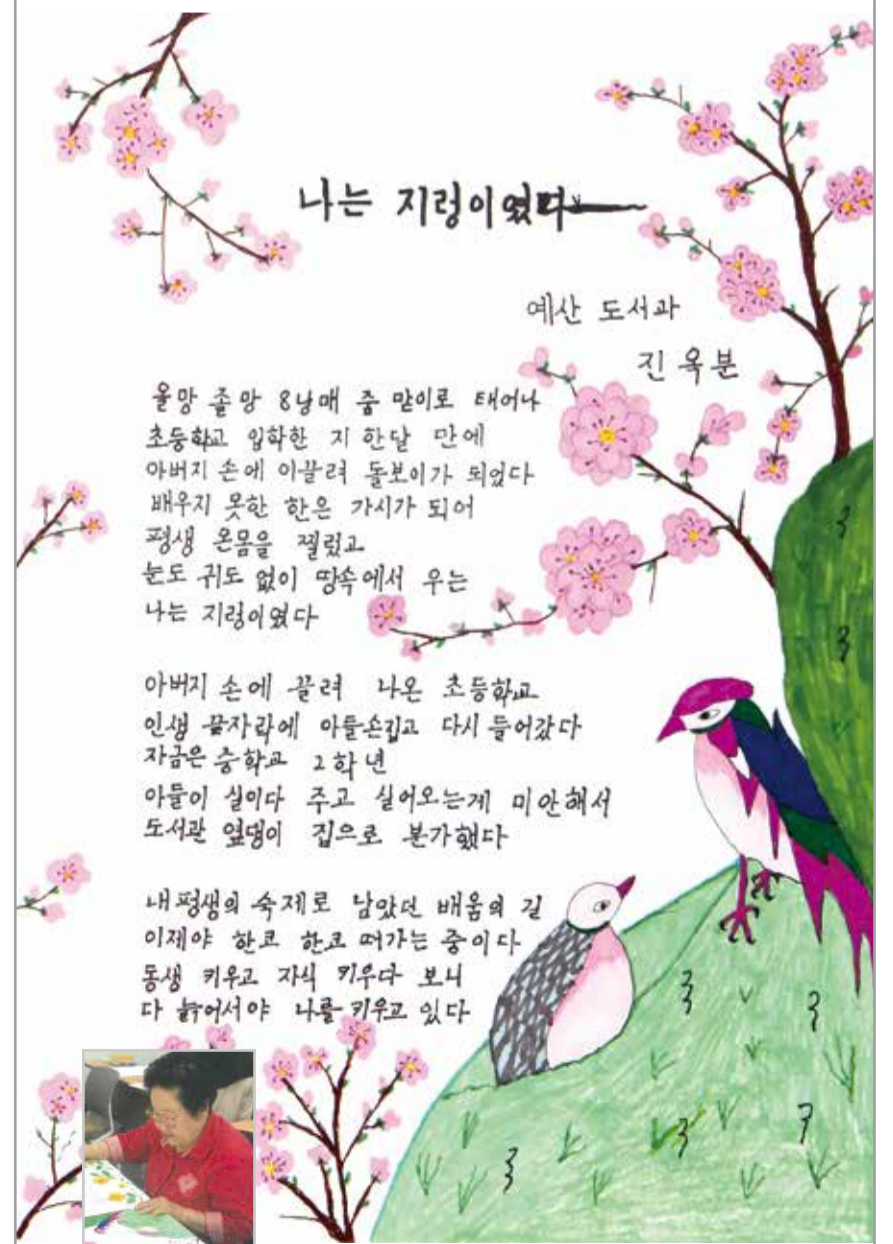 나는 지렁이였다
예산 도서과
진옥분
올망 졸망 8남매 중 맏이로 태어나
초등학교 입학한 지 한달 만에
아버지 손에 이끌려 돌보이가 되었다
배우지 못한 한은 가시가 되어
평생 온몸을 찔렀고
눈도 귀도 없이 땅속에서 우는
나는 지렁이였다
아버지 손에 끌려 나온 초등학교
인생 끝자락에 아들손잡고 다시 들어갔다
자금은 중학교 2학년
아들이 실이다 주고 실어오는게 미안해서
도서관 옆댕이 집으로 분가했다
내평생의 숙제로 남았던 배움의 길
이제야 한코 한코 떠가는 중이다
동생 키우고 자식 키우다 보니
다 늙어서야 나를 키우고 있다